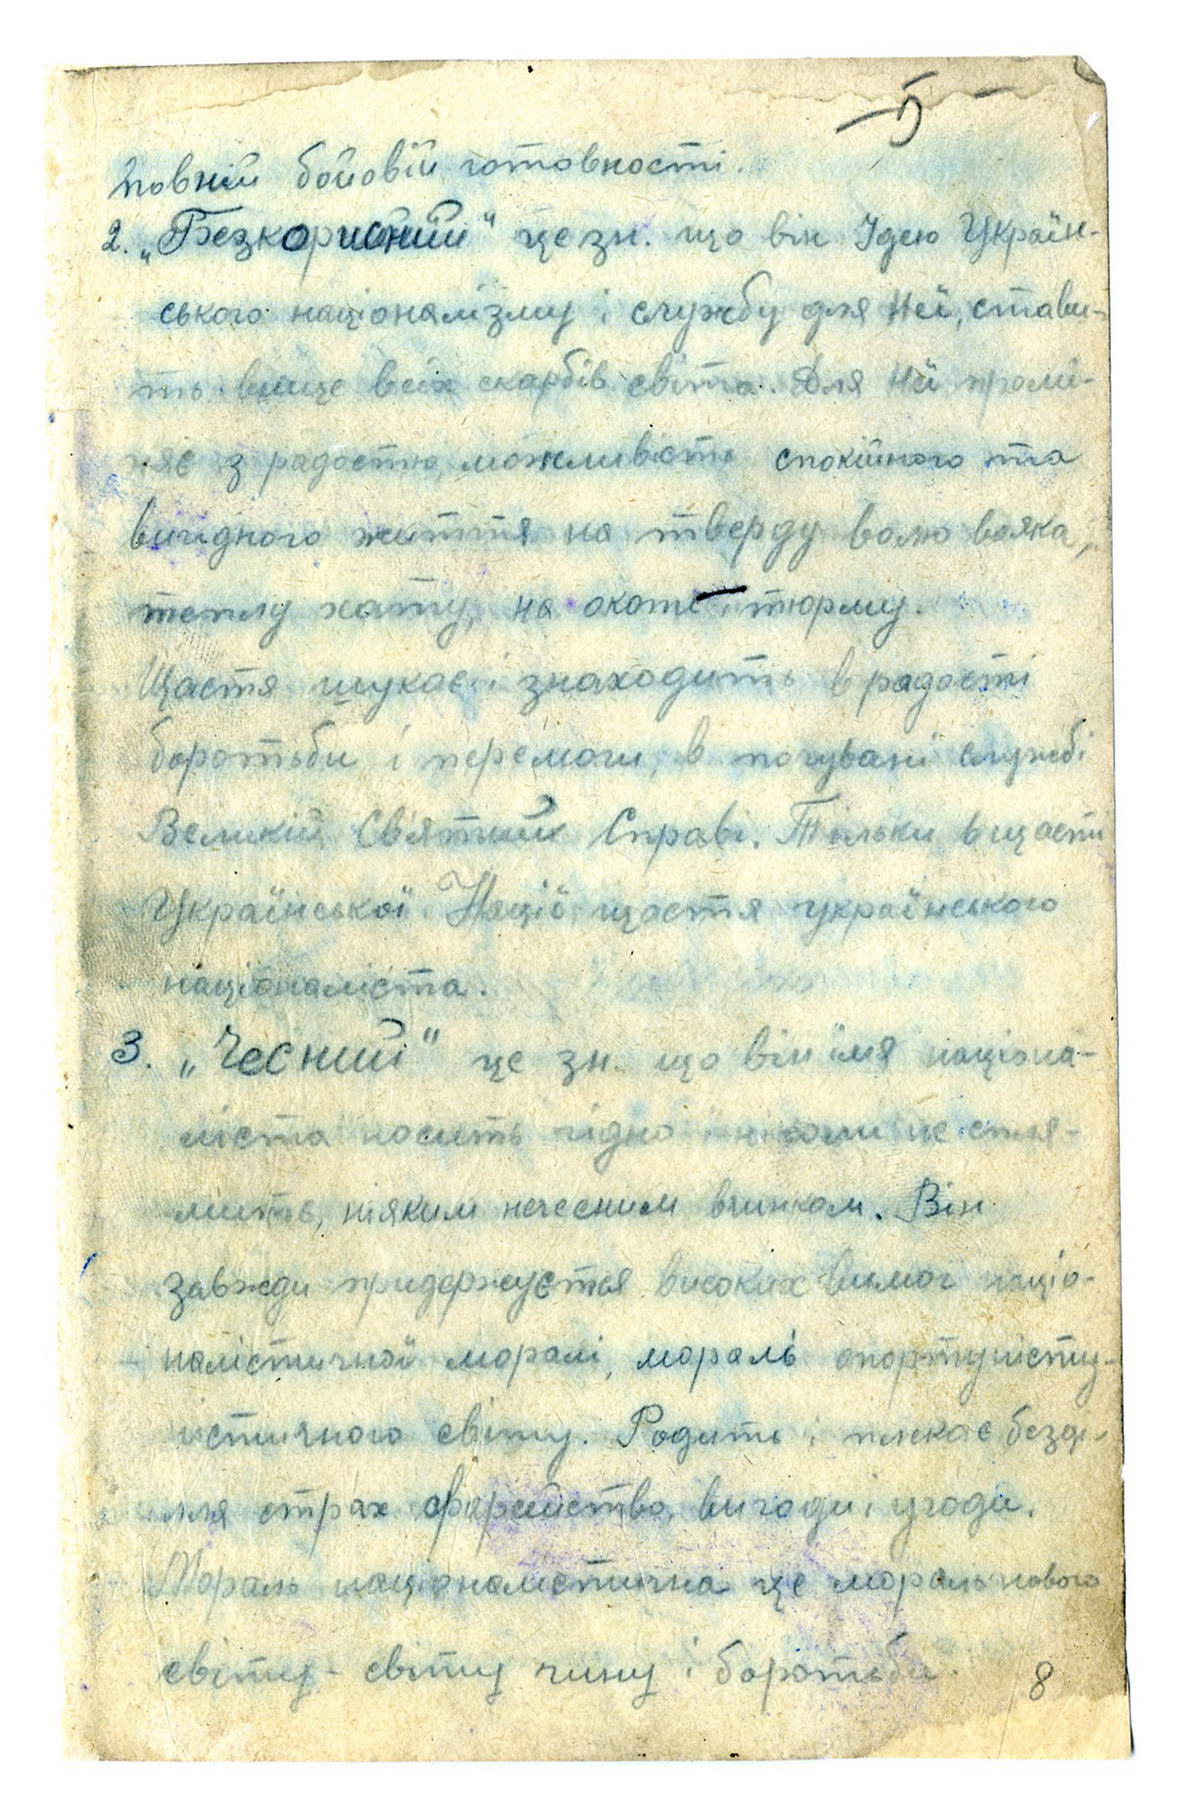 – 5 –
повній бойовій готовності.
2. „Безкорисний" це зн. що він Ідею Україн-
ського націоналізму і службу для Неї, стави-
ть вище всіх скарбів світа. Для Неї промі-
няє з радостю, можливість спокійного та
вигідного життя на тверду волю вояка,
теплу хату, на окопи і тюрму.
Щастя шукає і знаходить в радості
боротьби і перемоги, в почувані службі
Великій Святій Справі. Тільки в щасті
Української Нації щастя українського
націоналіста.
3. „Чесний" це зн. що він імя націона-
ліста носить гідно і ніколи не спля-
мить, ніяким нечесним вчинком. Він
завжди придержується високих вимог націо-
налістичної моралі, мораль опортуністу-
істичного світу. Родить і плекає безді-
лля страх фарисейство, вигоди і угоди.
Мораль націоналістична це мораль нового
світу - світу чину і боротьби.
8